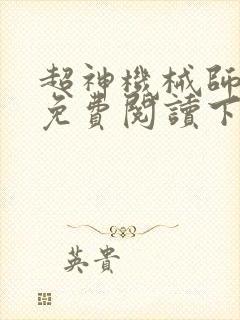 超神機械師
免費閱讀下
英貴